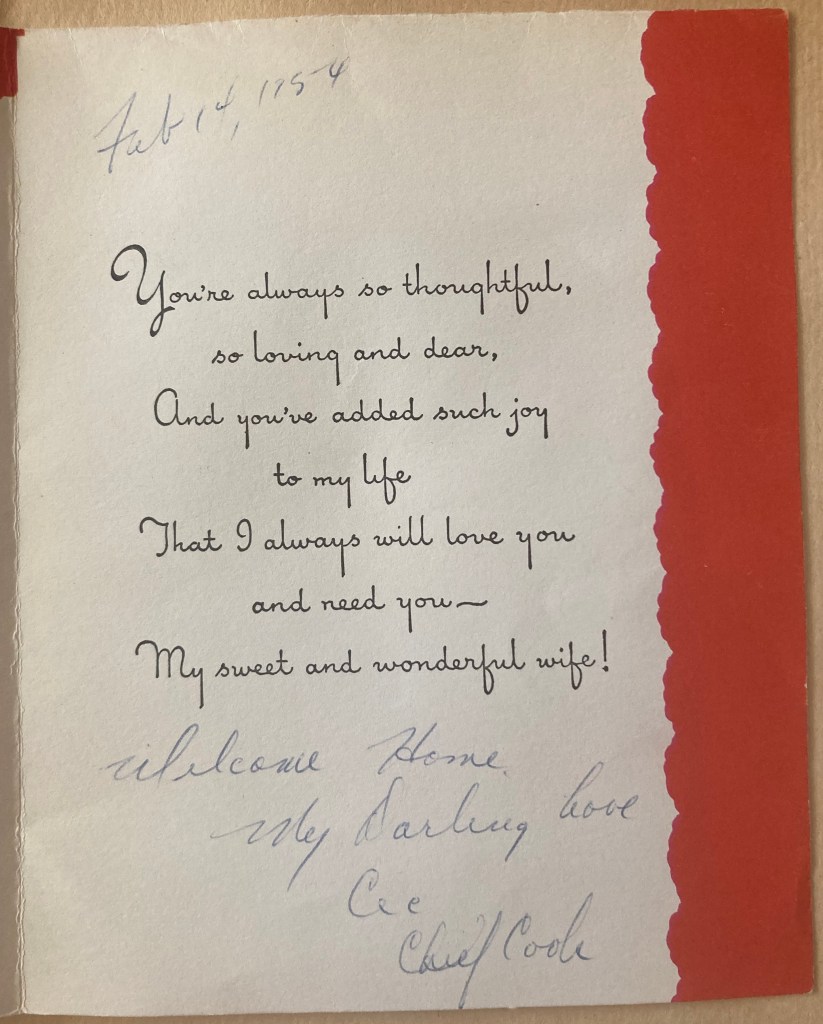 Feb 14, 1954
You're always so thoughtful,
so loving and dear,
And you've added such joy
to my life
That I always will love you
and need you—
My sweet and wonderful wife!
Welcome Home
My Darling Love
Cec
Chief Cook